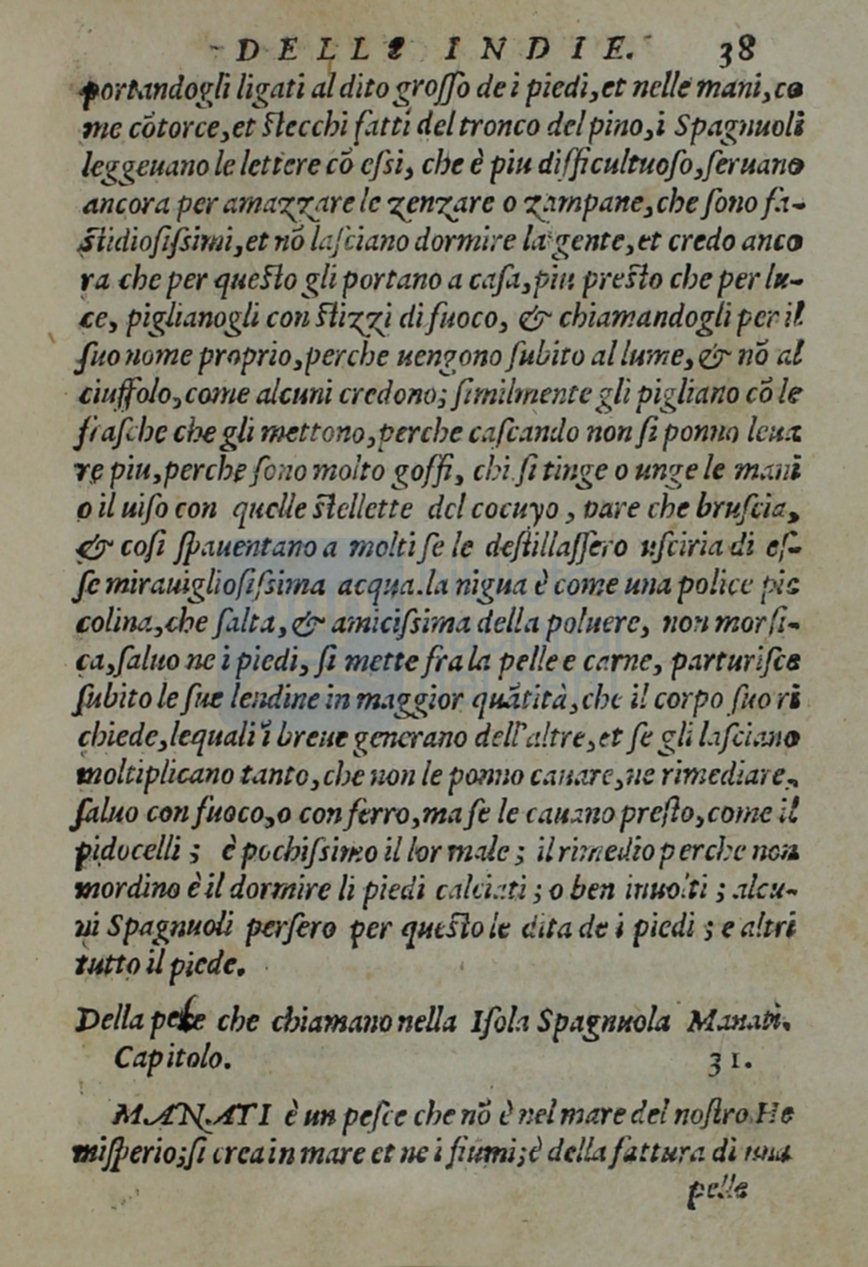 DELLE INDIE. 38
portandogli ligati al dito groſſo de i piedi, et nelle mani, co
me cõtorce, et ſtecchi fatti del tronco del pino, i Spagnuoli
leggeuano le lettere cõ eſsi, che è piu difficultuoſo, ſeruano
ancora per amazzare le zenzare o zampane, che ſono fa-
ſtidioſiſsimi, et nõ laſciano dormire la gente, et credo anco
ra che per queſto gli portano a caſa, piu preſto che per lu-
ce, piglianogli con ſtizzi di fuoco, & chiamandogli per il
ſuo nome proprio, perche uengono ſubito al lume, & nõ al
ciuffolo, come alcuni credono; ſimilmente gli pigliano cõ le
fraſche che gli mettono, perche caſcando non ſi ponno leua
re piu, perche ſono molto goffi, chi ſi tinge o unge le mani
o il uiſo con quelle ſtellette del cocuyo, pare che bruſcia,
& coſi ſpauentano a molti ſe le deſtillaſſero uſciria di eſ-
ſe mirauiglioſiſsima acqua. la nigua è come una police pic
colina, che ſalta, & amiciſsima della poluere, non morſi-
ca, ſaluo ne i piedi, ſi mette fra la pelle e carne, parturiſce
ſubito le ſue lendine in maggior quãtità, che il corpo ſuo ri
chiede, lequali ĩ breue generano dell'altre, et ſe gli laſciano
moltiplicano tanto, che non le ponno cauare, ne rimediare,
ſaluo con fuoco, o con ferro, ma ſe le cauano preſto, come il
pidocelli; è pochiſsimo il lor male; il rimedio perche non
mordino è il dormire li piedi calciati; o ben inuolti; alcu-
ni Spagnuoli perſero per queſto le dita de i piedi; e altri
tutto il piede.
Della peſce che chiamano nella Iſola Spagnuola Manati.
Capitolo. 31.
MANATI è un peſce che nõ è nel mare del noſtro He
miſperio; ſi crea in mare et ne i fiumi; è della fattura di una
pelle